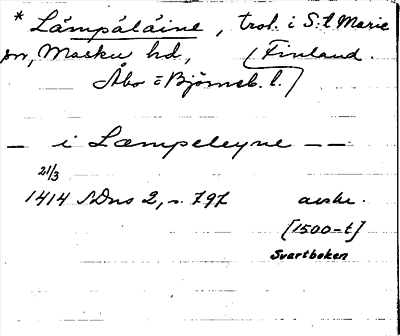 * Lämpäläine, trol. i S:t Marie
sn, Masku hd, (Finland.
Åbo = Björneb. l.)
– i Læmpeleyne – –
21/3
1414 SDns 2, s. 797 avskr.
[1500-t]
Svartboken